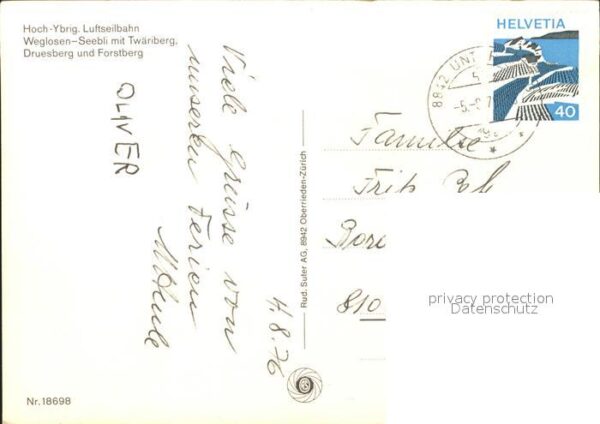 Hoch-Ybrig. Luftseilbahn
Weglosen–Seebli mit Twäriberg,
Druesberg und Forstberg
OLIVER
Viele Grüsse von
unseren Ferien
4.8.76
Rud. Suter AG, 8942 Oberrieden-Zürich
HELVETIA
40
8842 UNT
Familie
Fritz
810
privacy protection
Datenschutz
Nr. 18698